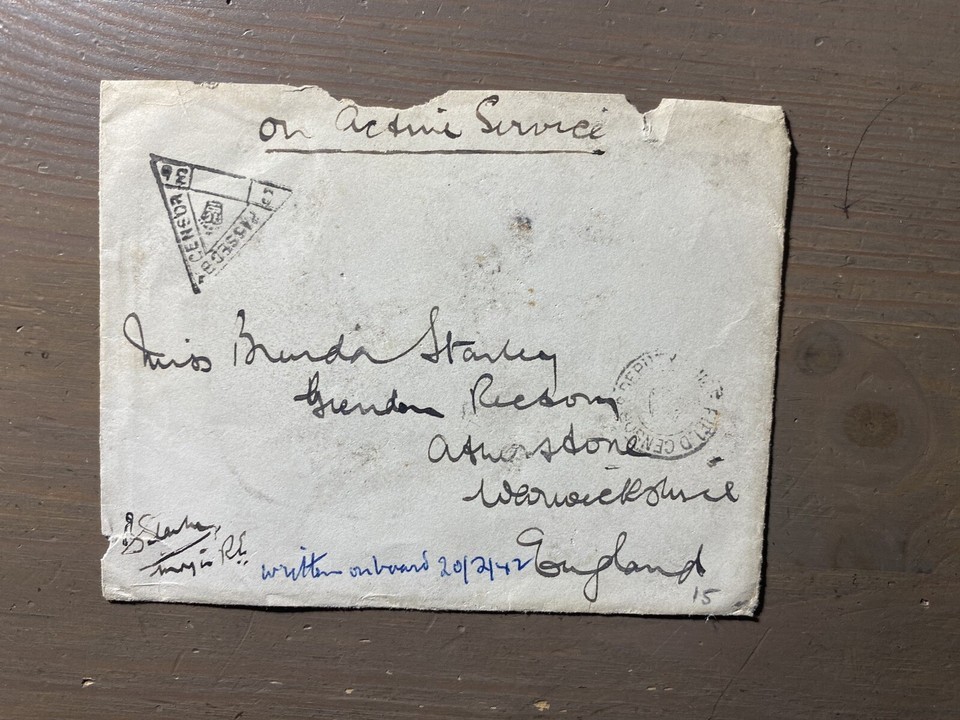 on Active Service
PASSED BY CENSOR
Miss Brenda Starley
Grendon Rectory
Atherstone
Warwickshire
England
FIELD CENSOR
R.E.
written onboard 20/2/42
15